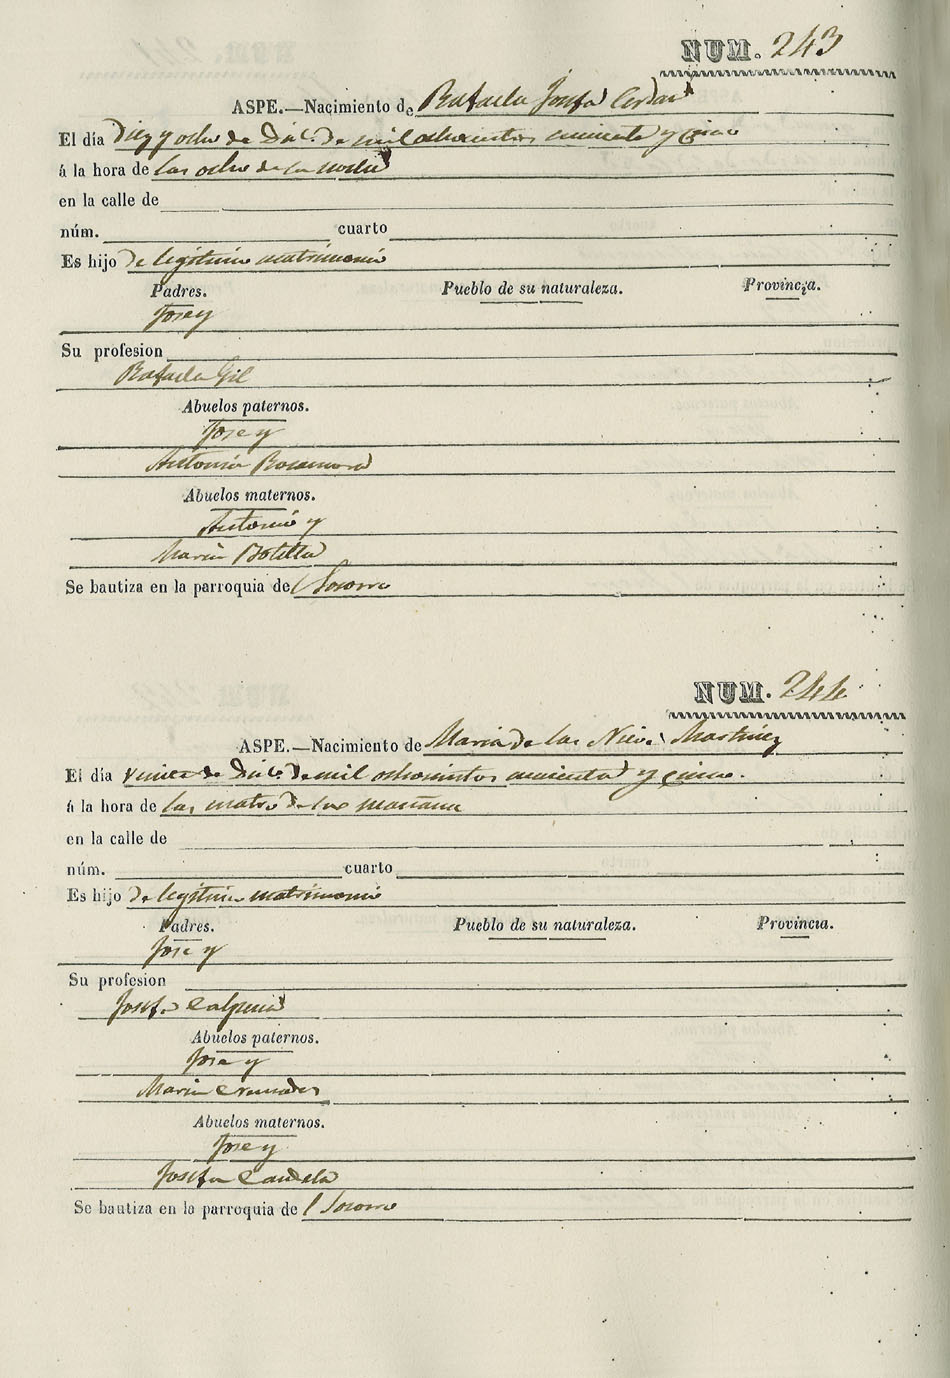 NUM. 243
ASPE.—Nacimiento de Rafaela Josefa Cerdan
El día Diez y ocho de Dic.e de mil ochocientos cincuenta y cinco
á la hora de las ocho de la noche
en la calle de
núm. cuarto
Es hijo de legitimo matrimonio
Padres. Pueblo de su naturaleza. Provincia.
Jose y
Su profesion
Rafaela Gil
Abuelos paternos.
Jose y
Antonia
Abuelos maternos.
Antonio y
Maria Botella
Se bautiza en la parroquia del Socorro
NUM. 244
ASPE.—Nacimiento de Maria de las Nieves Martinez
El día de Dic.e de mil ochocientos cincuenta y cinco.
á la hora de las cuatro de la mañana
en la calle de
núm. cuarto
Es hijo de legitimo matrimonio
Padres. Pueblo de su naturaleza. Provincia.
Jose y
Su profesion
Josefa
Abuelos paternos.
Jose y
Maria
Abuelos maternos.
Jose y
Josefa Candela
Se bautiza en la parroquia del Socorro